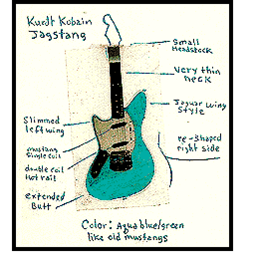 Kurdt Kobain
Jagstang
Small
Headstock
Very thin
neck
Jaguar wing
Style
re-shaped
right side
Slimmed
left wing
mustang
single coil
double coil
Hot rail
extended
Butt
Color: Aqua blue/green
like old mustangs